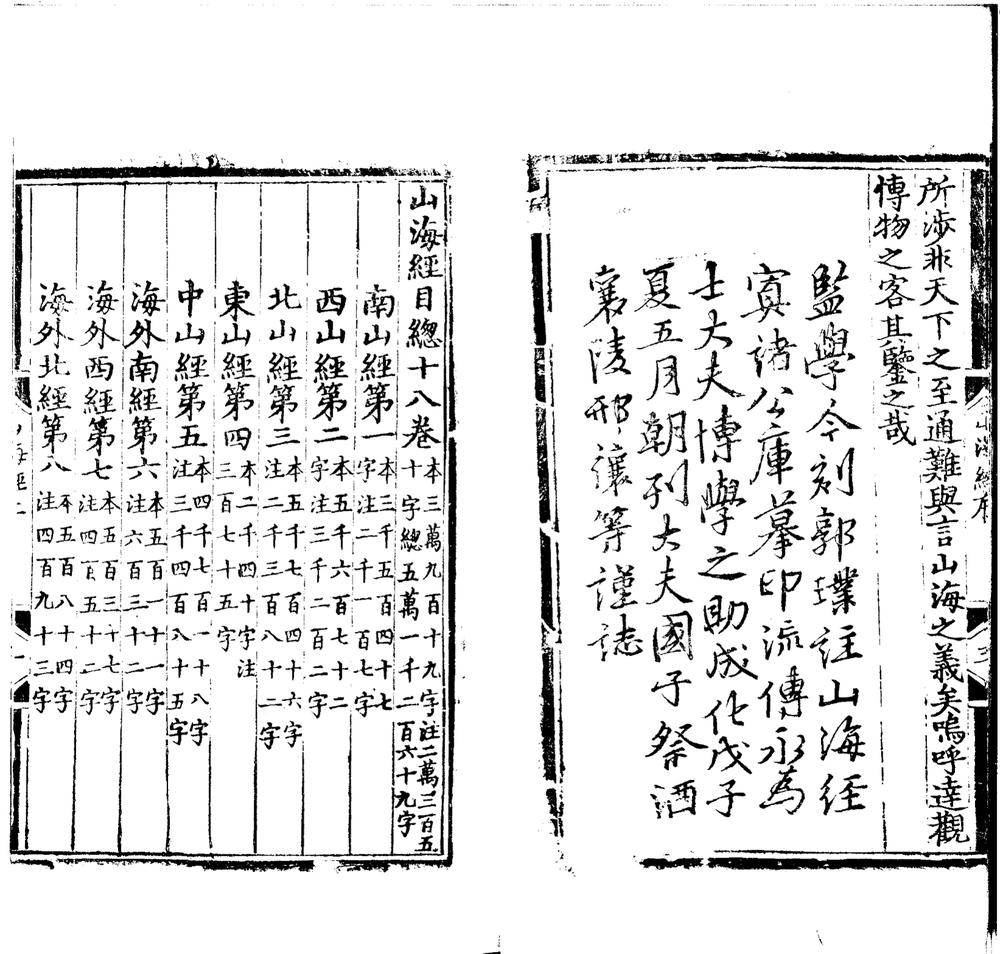 所涉非天下之至通難與言山海之義矣嗚呼達觀
博物之客其鑒之哉
監學今刻郭璞註山海經
寘諸公庫摹印流傳永為
士大夫博學之助成化戊子
夏五月朝列大夫國子祭酒
襄陵邢讓等謹誌
山海經序
三
山海經目總十八卷本三萬九百十九字注二萬三百五
十字總五萬一千二百六十九字
南山經第一本三千五百四十七
字注二千一百七字
西山經第二本五千六百七十二
字注三千二百二字
北山經第三本五千七百四十六字
注二千三百八十二字
東山經第四本二千四十字注
三百七十五字
中山經第五本四千七百一十八字
注三千四百八十五字
海外南經第六本五百一十一字
注六百三十二字
海外西經第七本五百三十七字
注四百五十二字
海外北經第八本五百八十四字
注四百九十三字